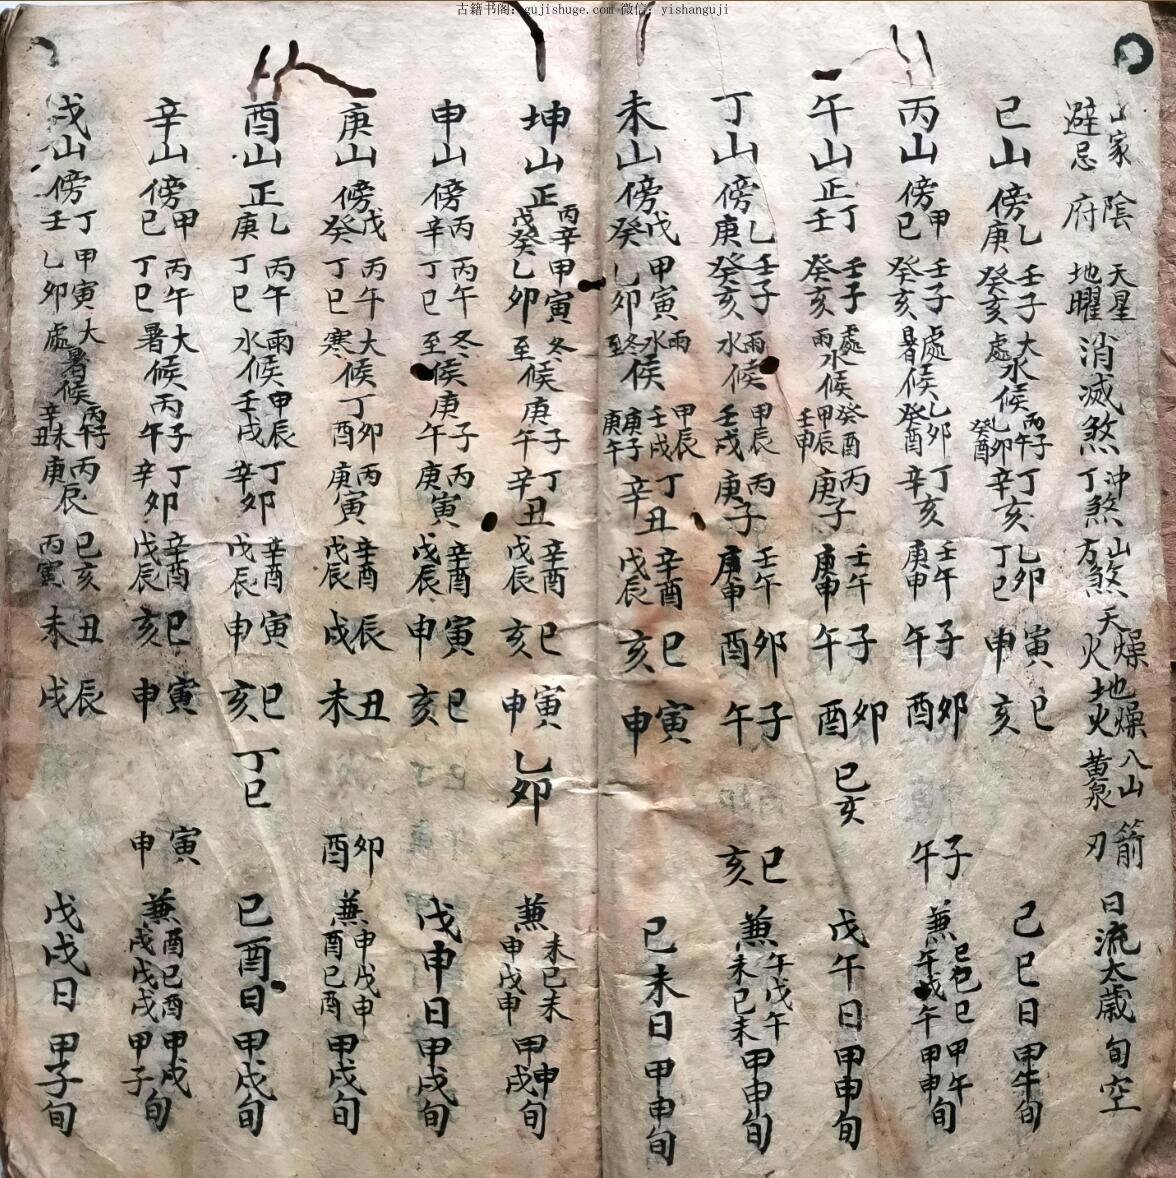 古籍书阁：gujishuge.com 微信：yishanguji
山家避忌 陰府 天星地曜 消滅煞 沖丁煞 山方煞 天燥火 地燥火 八山黄泉 箭刃 日流太歲 旬空
巳山 傍乙庚 壬子癸亥 大處水候 丙子丙午乙卯癸酉 丁亥辛亥 乙卯丁巳 寅申 巳亥 己巳日 甲午旬
丙山 傍甲巳 壬子癸亥 處暑候 乙卯癸酉 丁亥辛亥 壬午庚申 子午 卯酉 子午 兼巳己巳午戊午 甲午甲申旬
午山 正丁壬 壬子癸亥 處雨水候 癸酉甲辰壬申 丙子庚子 壬午庚申 子午 卯酉 己亥 戊午日 甲申旬
丁山 傍乙庚 壬子癸亥 雨水候 甲辰壬戌 丙子庚子 壬午庚申 卯酉 子午 巳亥 兼午戊午未已未 甲申旬
未山 傍戊癸 甲寅乙卯 雨水冬至候 甲辰壬戌庚子庚午 丁丑辛丑 辛酉戊辰 巳亥 寅申 已未日 甲申旬
坤山 正丙辛戊癸 甲寅乙卯 冬至候 庚子庚午 丁丑辛丑 辛酉戊辰 巳亥 寅申 乙卯 兼未已未申戊申 甲申甲戌旬
申山 傍丙辛 丙午丁巳 冬至候 庚子庚午 丙寅庚寅 辛酉戊辰 寅申 巳亥 戊申日 甲戌旬
庚山 傍戊癸 丙午丁巳 大寒候 丁卯丁酉 丙寅庚寅 辛酉戊辰 辰戌 丑未 卯酉 兼申戊申酉已酉 甲戌旬
酉山 正乙庚 丙午丁巳 雨水候 甲辰壬戌 丁卯辛卯 辛酉戊辰 寅申 巳亥 丁巳 已酉日 甲戌旬
辛山 傍甲巳 丙午丁巳 大暑候 丙子丙午 丁卯辛卯 辛酉戊辰 巳亥 寅申 寅申 兼酉已酉戌戊戌 甲戌甲子旬
戌山 傍丁壬 甲寅乙卯 大暑處候 丙子丙午辛未辛丑 丙辰庚辰 己亥丙寅 丑未 辰戌 戊戌日 甲子旬